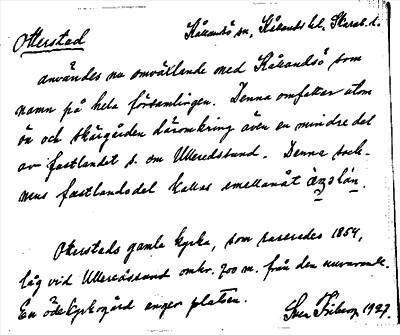 Otterstad
Kållandsö sn, Kållands hd, Skarab. l.
användes nu omväxlande med Kållandsö som
namn på hela församlingen. Denna omfattar utom
ön och skärgården däromkring även en mindre del
av fastlandet s. om Ulleredssund. Denna sock-
nens fastlandsdel kallas emellanåt
Otterstads gamla kyrka, som raserades 1854,
låg vid Ulleredssund omkr. 700 m. från den nuvarande.
En ödekyrkogård anger platsen.
Sven 1927.